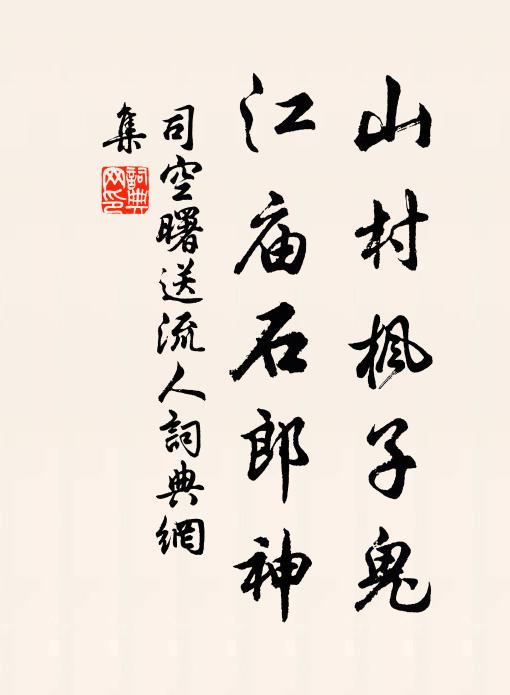 山村楓子鬼
江庙石郎神
司空曙送流人詞典網
集
詞典
网印